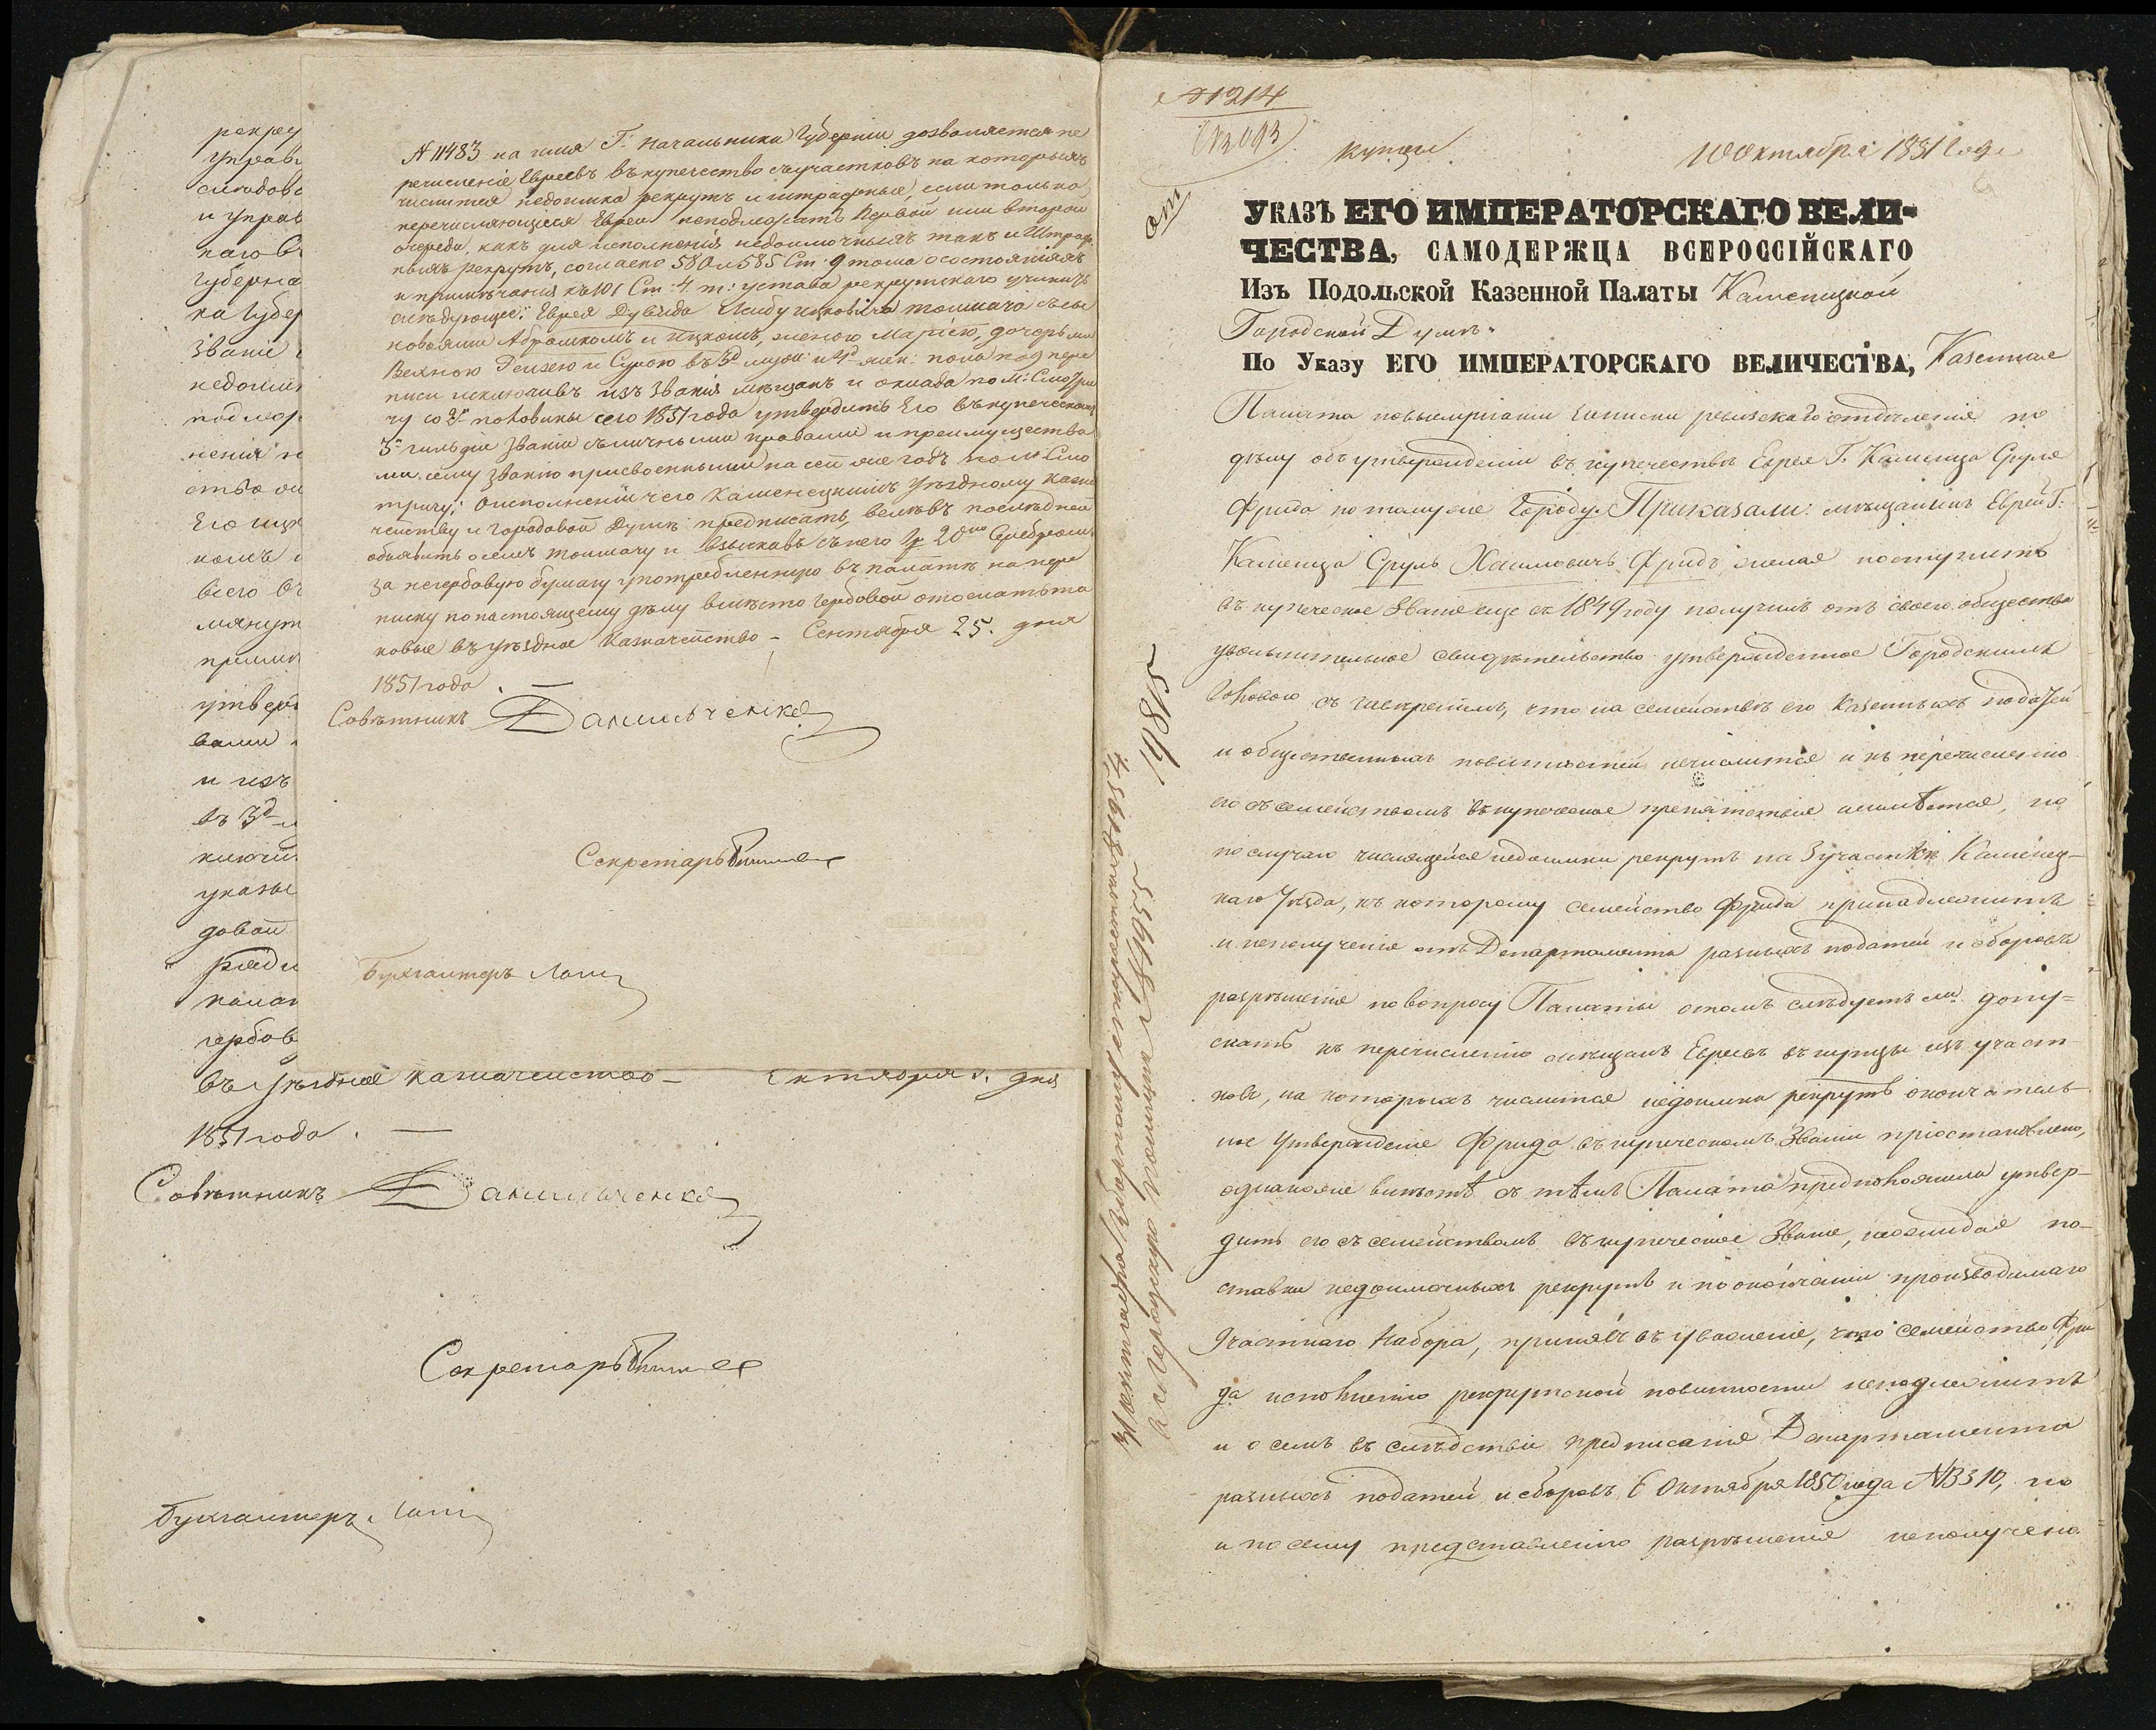 рекру
управ
следова
и управ
наго В
губерна
на Губер
Званіе
недоим
подлеж
ненія
ства
Его
комъ
всего въ
мянут
прим
утверд
вами
и изъ
въ 3й
ключи
указы
довой
ради
палат
гербов
въ уѣздное казначейство – Октября дня
1851 года. —
Совѣтникъ Данильченко
Секретарь
Бухгалтеръ
N 11483 на имя Г: Начальника Губерніи дозволяется пе
речисленіе Евреевъ въ купечество съ участковъ на которыхъ
числится недоимка рекрутъ и штрафные, если только
перечисляющіеся Евреи неподлежатъ первой или второй
очереди, какъ для исполненія недоимочныхъ такъ и Штраф
ныхъ рекрутъ, согласно 580 и 585 Ст: 9 тома о состояніяхъ
и примѣчанія къ 101 Ст: 4 т: устава рекрутскаго учинить
слѣдующее: Еврея Дувида Лейбу Ицковича Толмача съ сы
новьями Абрамкомъ и Ицкомъ, женою Маріею, дочерьми
Гензею и Сурою въ 3й муж: и 4й жен: пола по 9 пере
писи исключивъ изъ званія мѣщанъ и оклада по М: Смотри
чу со 2й половины сего 1851 года утвердить Его въ купеческомъ
3й гильдіи званіи съ личными правами и преимущества
ми сему званію присвоенными на сей же годъ по М: Смо
тричу; О исполненіи чего Каменецкимъ Уѣздному Казна
чейству и городовой Думѣ предписать, велѣвъ послѣдней
объявить о семъ Толмачу и взыскавъ съ него 1р 20 ко Серебромъ
за негербовую бумагу употребленную въ палатѣ на пере
писку по настоящему дѣлу вмѣсто гербовой отослать та
ковые въ уѣздное Казначейство – Сентября 25. дня
1851 года. —
Совѣтникъ Данильченко
Секретарь
Бухгалтеръ
N 1214
купцы
10 Октября 1851 года
УКАЗЪ ЕГО ИМПЕРАТОРСКАГО ВЕЛИ-
ЧЕСТВА, САМОДЕРЖЦА ВСЕРОССІЙСКАГО
Изъ Подольской Казенной Палаты Каменицкой
Городской Думѣ.
По Указу ЕГО ИМПЕРАТОРСКАГО ВЕЛИЧЕСТВА, Казенная
Палата по выслушаніи записки ревизскаго отдѣленія по
дѣлу объ утвержденіи въ купечество Еврея Г. Каменца Сруля
Фрида по тому же Городу. Приказали: мѣщанинъ Еврей Г:
Каменца Сруль Хаимовичъ Фридъ желая поступить
въ купеческое званіе еще въ 1849 году получилъ отъ своего общества
увольнительное свидѣтельство утвержденное Городскимъ
Головою съ тѣмъ, что на семействѣ его казенныхъ податей
и общественныхъ повинностей нечислится и къ перечисленію
его съ семействомъ въ купеческое препятствія неимѣется, но
по случаю числящейся недоимки рекрутъ на 3 участкѣ Каменец-
каго Уѣзда, къ которому семейство Фрида принадлежитъ
и неполученія отъ Департамента разныхъ податей и сборовъ
разрѣшенія по вопросу Палаты о томъ слѣдуетъ ли допу=
скать къ перечисленію мѣщанъ Евреевъ въ купцы изъ участ-
ковъ, на которыхъ числится недоимка рекрутъ окончатель-
ное утвержденіе Фрида въ купеческомъ званіи пріостановлено,
однакоже вмѣстѣ съ тѣмъ Палата предположила утвер-
дить его съ семействомъ въ купеческое званіе, неожидая по-
ставки недоимочныхъ рекрутъ и по окончаніи производимаго
частнаго Набора, принявъ въ уваженіе, что семейство Фри
да исполненію рекрутской повинности неподлежитъ
и о семъ въ слѣдствіе предписанія Департамента
разныхъ податей и сборовъ, 6 Октября 1850 года N 3310, но
и по сему представленію разрѣшеніе неполучено